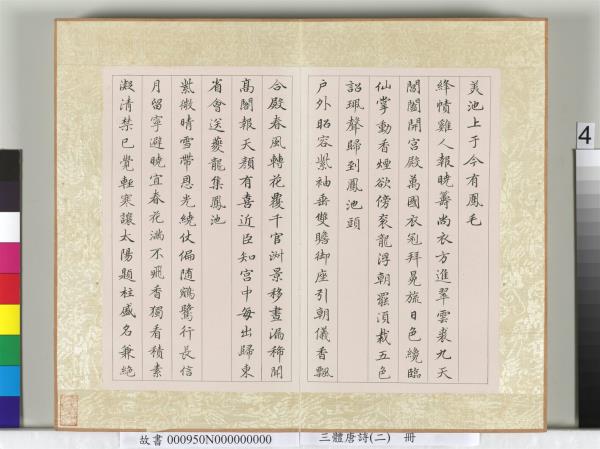 美池上于今有鳳毛
絳幘雞人報曉籌尚衣方進翠雲裘九天
閶闔開宮殿萬國衣冠拜冕旒日色纔臨
仙掌動香煙欲傍袞龍浮朝罷須裁五色
詔珮聲歸到鳳池頭
戶外昭容紫袖垂雙瞻御座引朝儀香飄
合殿春風轉花覆千官淑景移晝漏稀聞
高閣報天顏有喜近臣知宮中每出歸東
省會送夔龍集鳳池
紫微晴雪帶恩光繞仗偏隨鵷鷺行長信
月留寧避曉宜春花滿不飛香獨看積素
凝清禁已覺輕寒讓太陽題柱盛名兼絕
4
故書 000950N000000000 三體唐詩(二) 冊